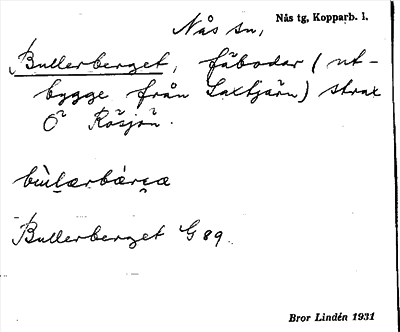 Nås sn, Nås tg, Kopparb. l.
Bullerberget, fäbodar (ut-
bygge från Laxtjärn) strax
Ö Rösjön.
bùl̥ærbǽrɕæ
Bullerberget G 89.
Bror Lindén 1931